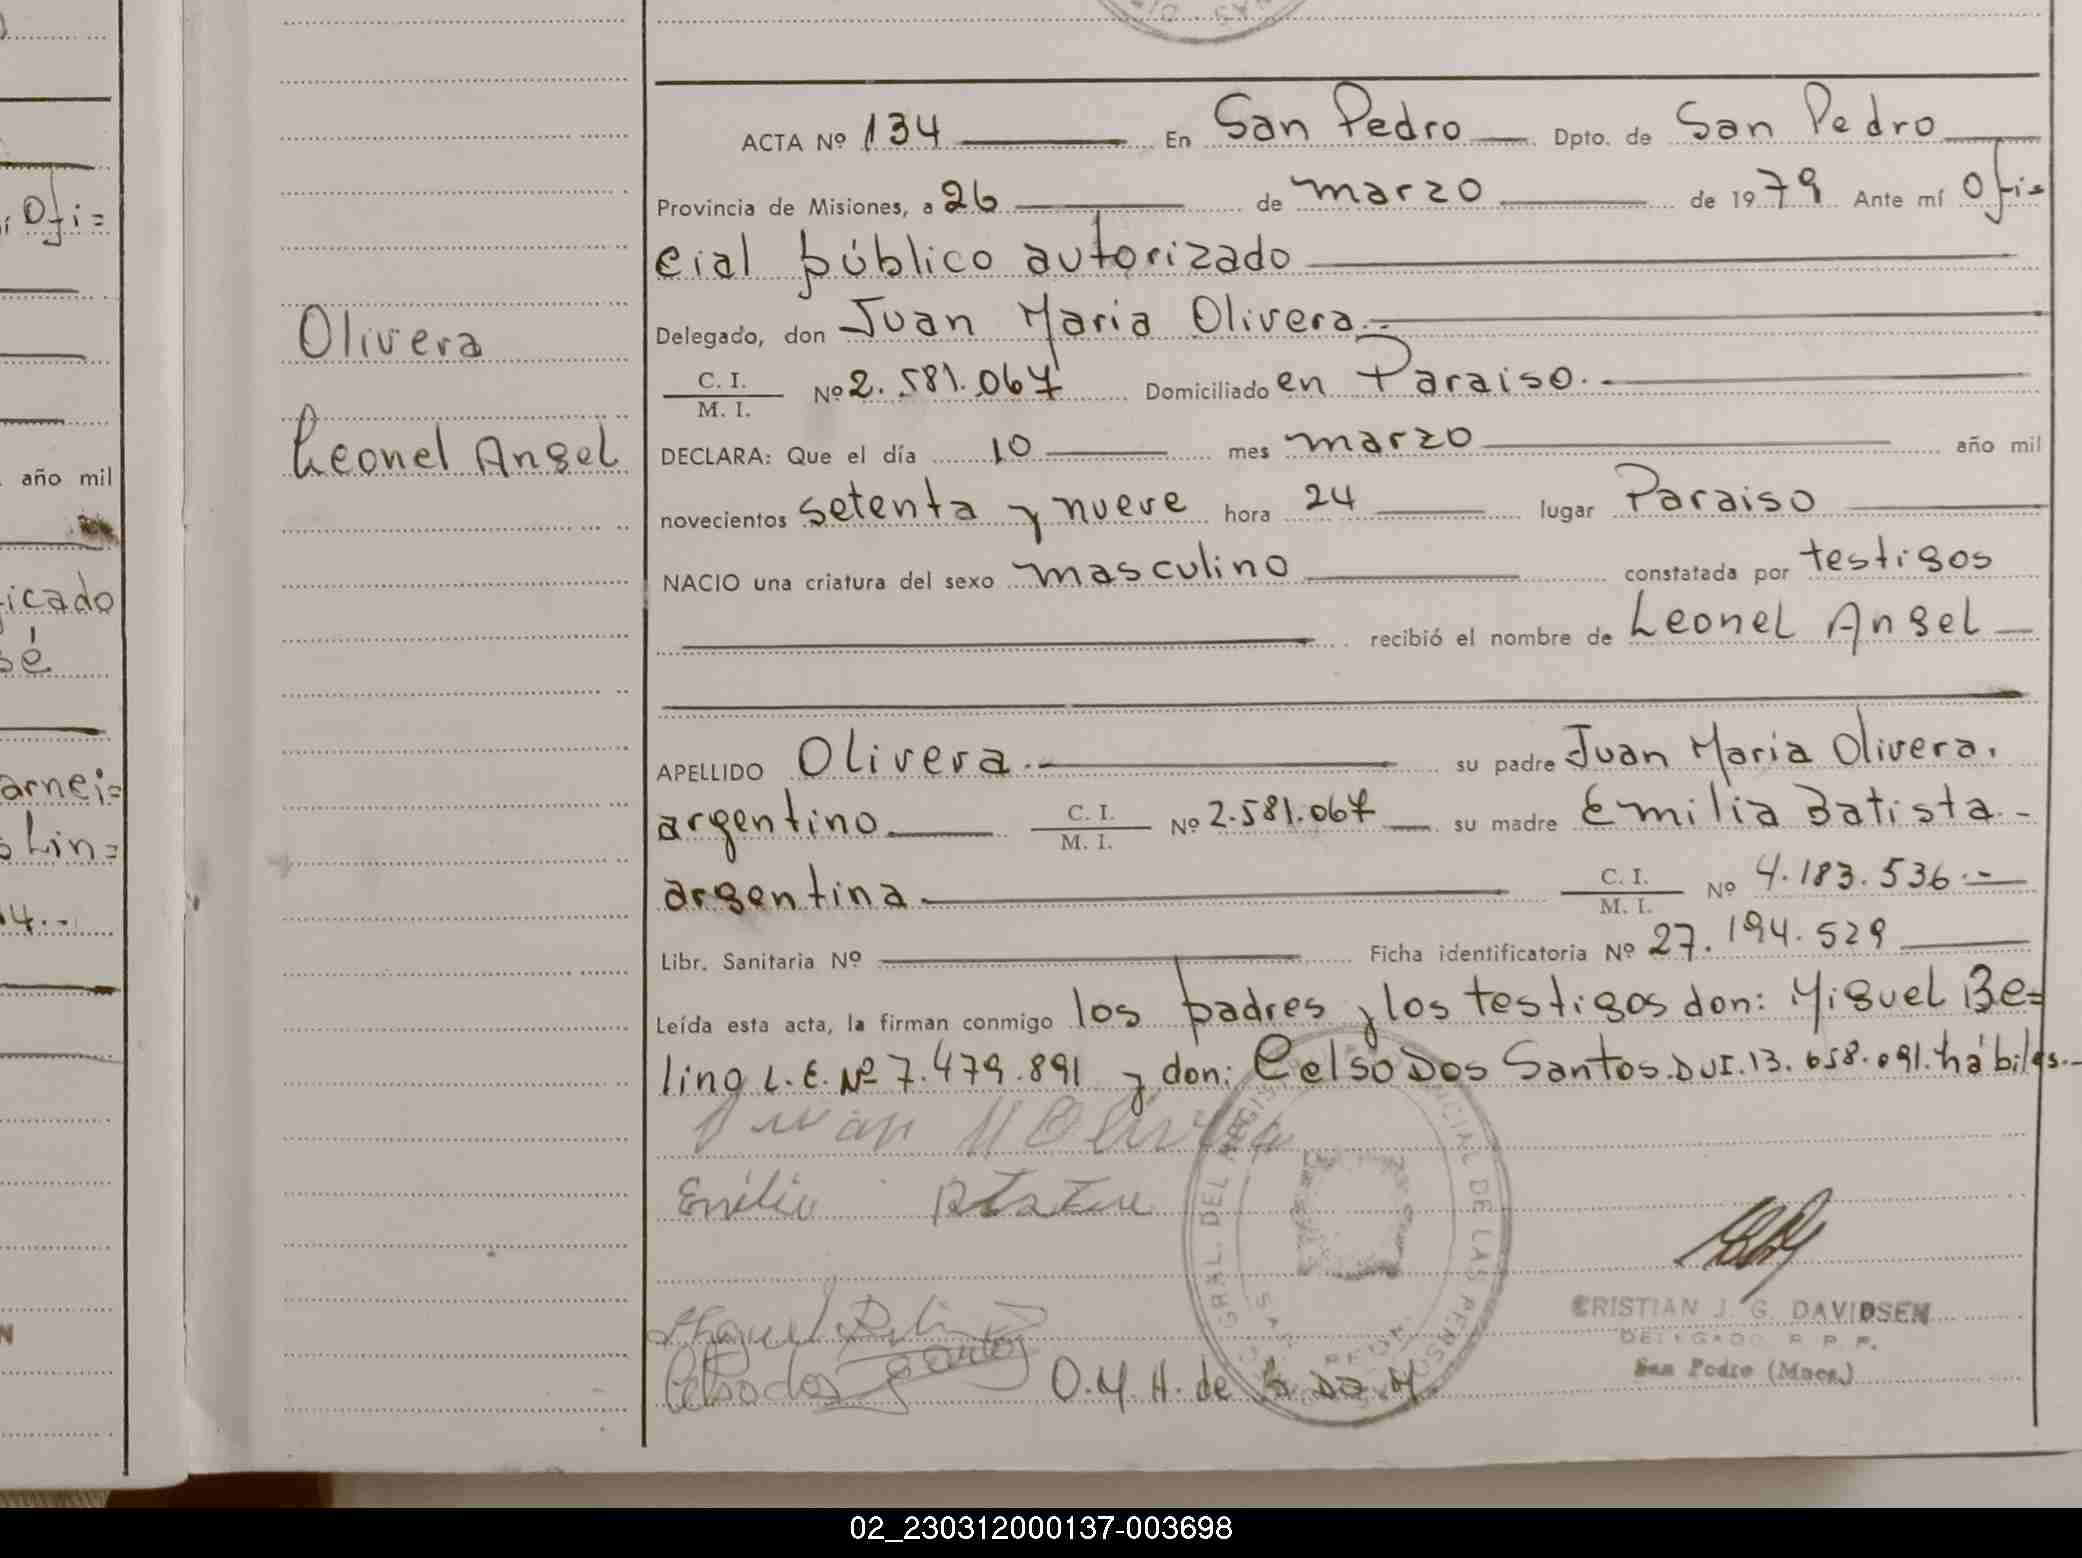 Ofi=
año mil
icado
sé
arnei=
Lin=
4.-
N
Olivera
Leonel Angel
ACTA Nº 134 En San Pedro Dpto. de San Pedro
Provincia de Misiones, a 26 de marzo de 1979 Ante mí Ofi=
cial público autorizado
Delegado, don Juan Maria Olivera.-
C. I.
M. I. Nº 2.581.067 Domiciliado en Paraiso.
DECLARA: Que el día 10 mes marzo año mil
novecientos setenta y nueve hora 24 lugar Paraiso
NACIO una criatura del sexo masculino constatada por testigos
recibió el nombre de Leonel Angel
APELLIDO Olivera.- su padre Juan Maria Olivera.
argentino C. I.
M. I. Nº 2.581.067 su madre Emilia Batista.-
argentina C. I.
M. I. Nº 4.183.536.-
Libr. Sanitaria Nº Ficha identificatoria Nº 27.194.529
Leída esta acta, la firman conmigo los padres y los testigos don: Miguel Be=
lino L.E. Nº 7.479.891 y don: Celso Dos Santos. DUI.13.658.091. hábiles.-
Juan M Olivera
Emilia
Miguel Belino
Celso dos Santos
O.M.H. de
GRAL. DEL REGISTRO PROVINCIAL DE LAS PERSONAS
SAN PEDRO
CRISTIAN J. G. DAVIDSEN
DELEGADO R. P. P.
San Pedro (Mnes.)
02_230312000137-003698